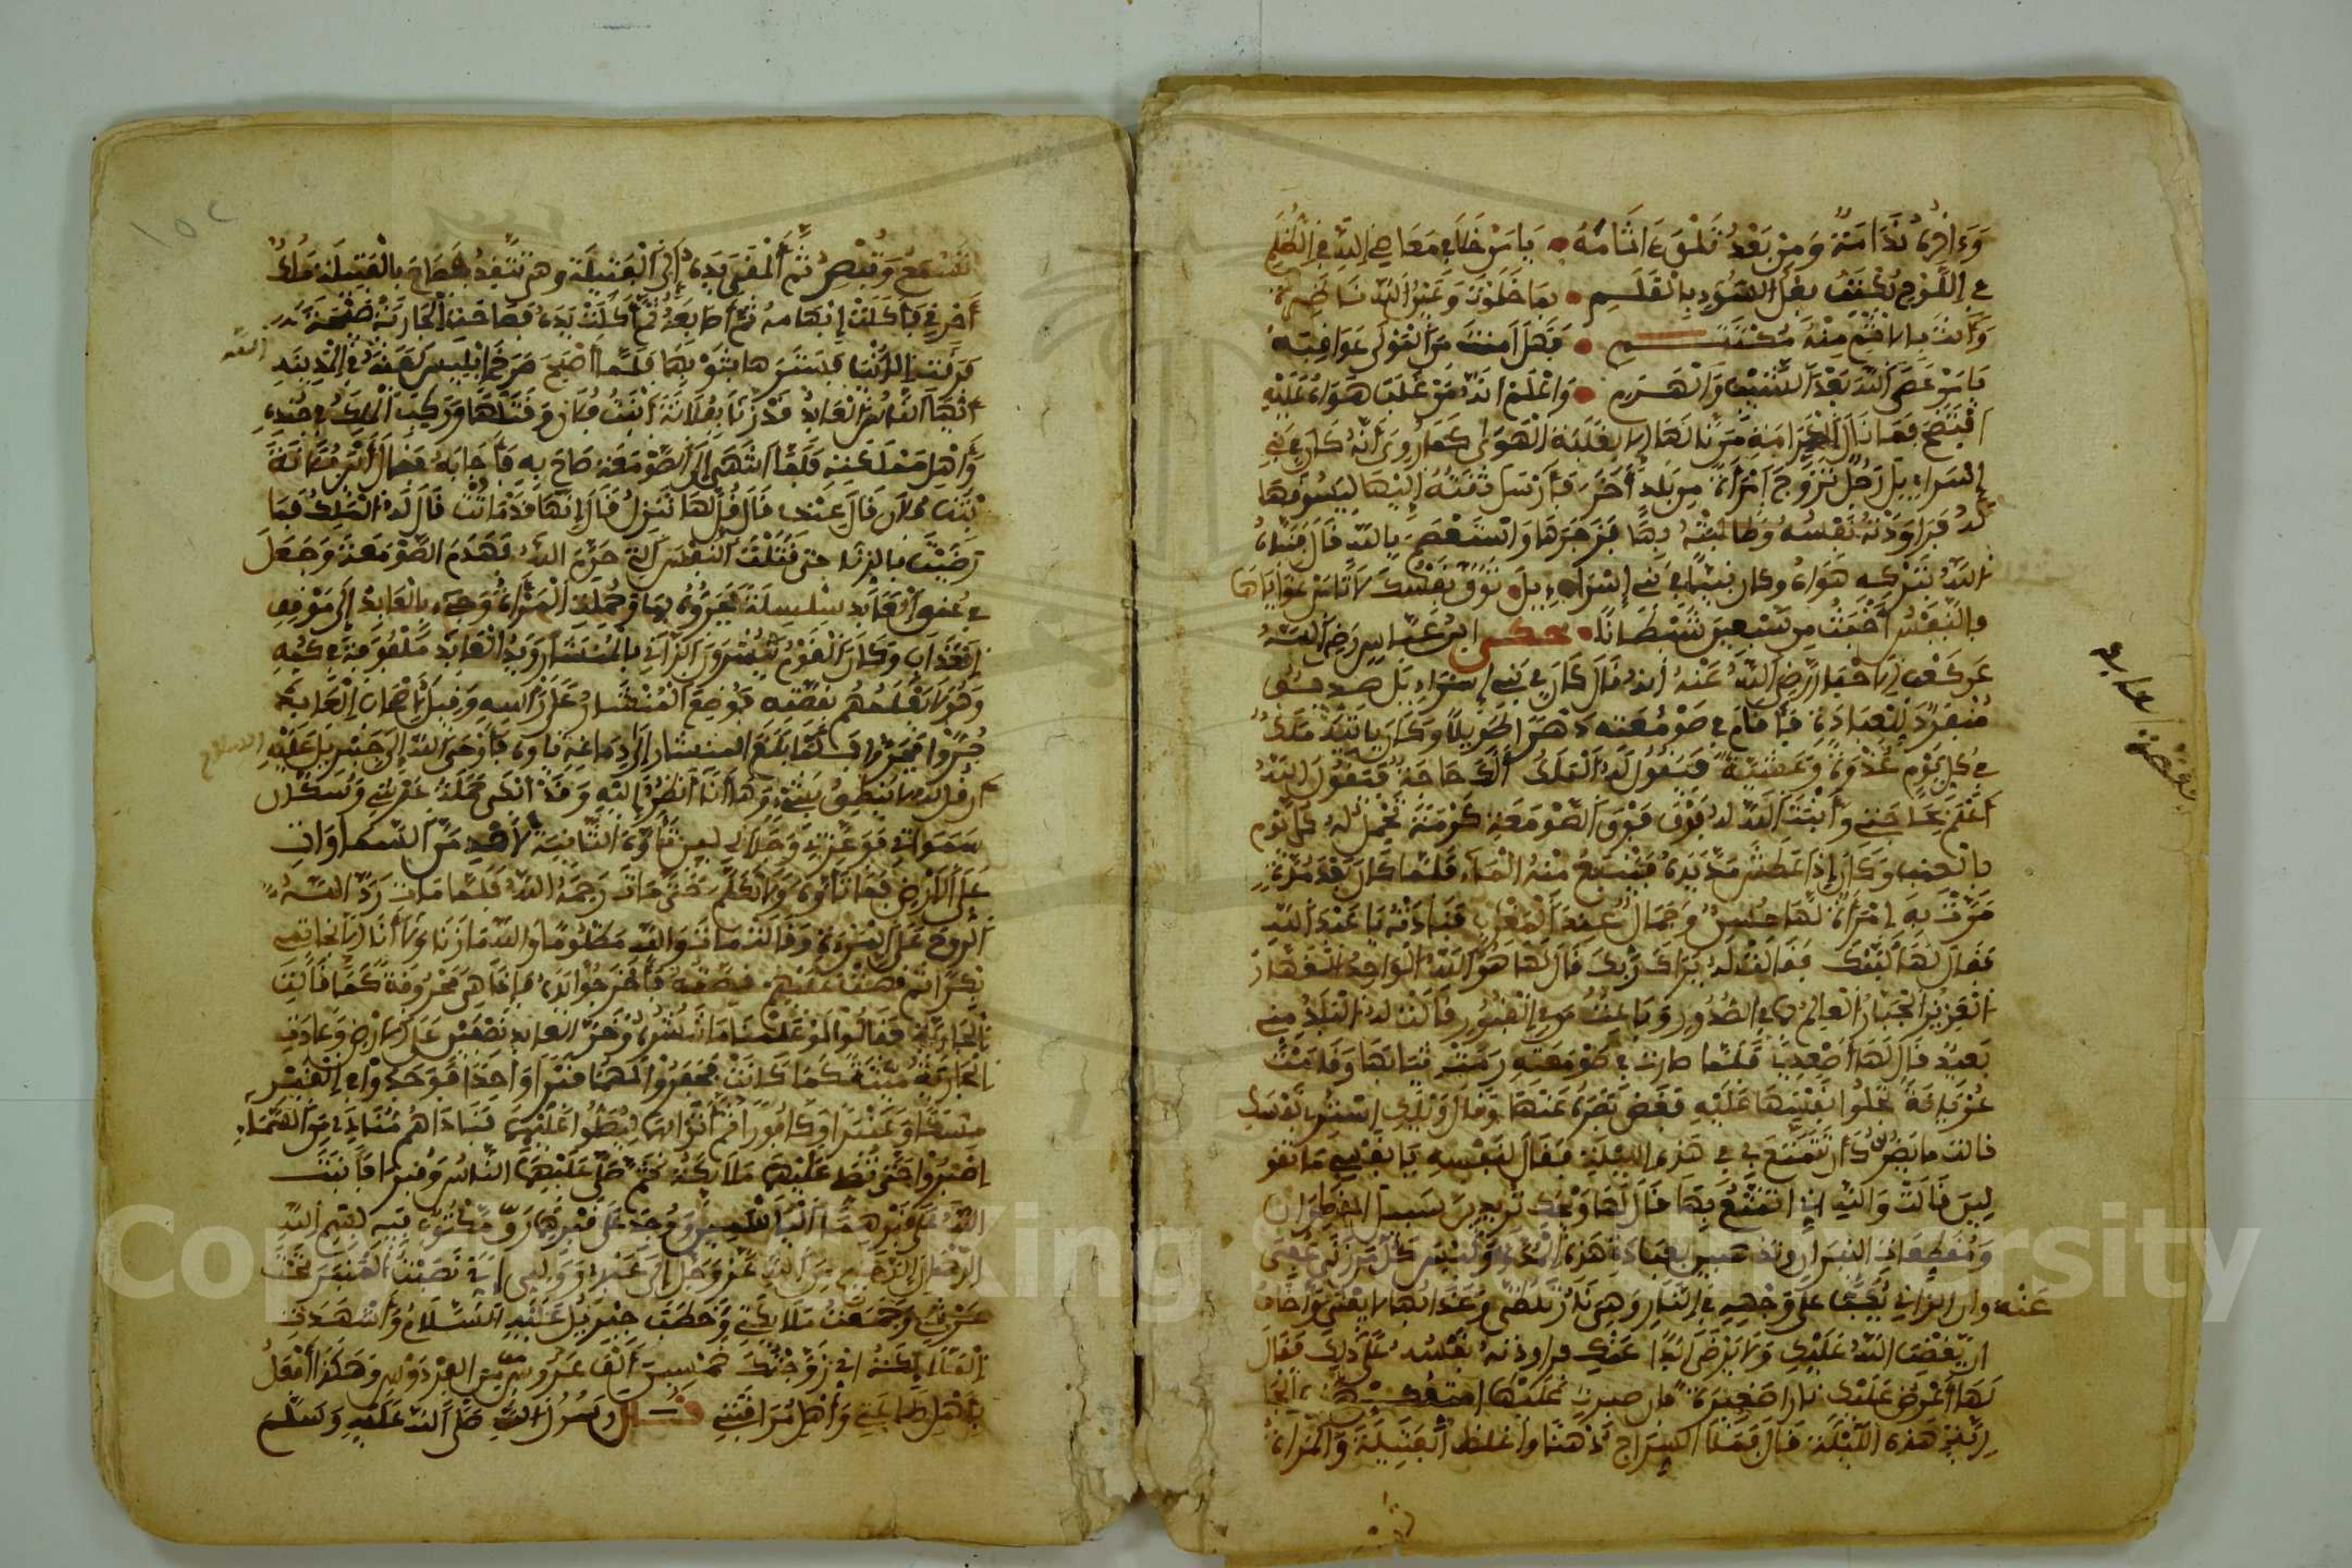 وَءَاخِرُهُ نَدَامَتُهُ وَمِنْ بَعْدُ تَلْقَى ءَاثَامَهُ يَا مَنْ خَلَا فِي مَعَاصِي اللهِ فِي الظُّلَمِ
في اللوح يكتب فعل السوء بالقلم بما خلوت وعين الله ناظرة
وَأَنْتَ بالاثم منه مكتتم فهل أمنت من المولى عواقبه
يا من عصى الله بعد الشيب والهرم واعلم انه من غلب هواه عليه
افتضح فما نال الكرامة من نالها الا بغلبة الهوى كما روي انه كان في بني
إسراءيل رجل تزوج امرأة من بلد أخرى فأرسل ثقته إليها ليسوقها
له فراودته نفسه وطالبته بها فزجرها واستعصم بالله قال فنبأه
الله بتركه هواه وكان نبيا في بني إسراءيل توق نفسك لا تأمن غوايلها
فالنفس أخبث من سبعين شيطانا حكى ابن عباس رضي الله
عن كعب الاحبار رضي الله عنه أنه قال كان في بني إسراءيل صديق
منفرد للعبادة فأقام في صومعته دهرا طويلا وكان ياتيه ملك
في كل يوم غدوة وعشية فيقول له الملك ألك حاجة فيقول الله
أعلم بحاجتي وأنبت الله له فوق الصومعة كرمة تحمل له كل يوم
بالعنب وكان إذا عطش مد يده فينبع منه الماء فلما كان بعد مدة
مرت به امرأة لها حسن وجمال عند المغرب فنادته يا عبد الله
فقال لها لبيك فقالت له يراك ربك قال لها هو الله الواحد القهار
العزيز الجبار العالم بما في الصدور وباعث من في القبور قالت له البلد مني
بعيد قال لها أصعدي فلما صارت في صومعته رمت ثيابها وقامت
عريانة تجلوا نفسها عليه فغض بصره عنها وقال ويلك استري نفسك
قالت ما يضرك أن تتمتع بي في هذه الليلة فقال لنفسه يا نفس ما تقو
لين قالت والله اني أتمتع بها قال لها ويحك تريدين سرابيل القطران
ومقطعات النيران وتذهبين بعبادة هذه المدة وليس كل من زنى عفي
عنه وان الزاني يكب على وجهه في النار وهي نار تلظى وعذابها لا يفنى وأخاف
ان يغضب الله عليك ولا يرضى أبدا عنك فراودته نفسه على ذلك فقال
لها أعرض عليك نارا صغيرة فان صبرت عليها أمتعك بهذه الجا
رية هذه الليلة قال فملأ السراج دهنا وأغلظ الفتيلة والمرأة
بقصة عابد
١٥٢
تسمع وتبصر ثم ألقى يده إلى الفتيلة وهي تتقد فصاح بالفتيلة مالك
أحرقي فأكلت إبهامه ثم أصابعه ثم أكلت يده فصاحت الجارية صيحة
فارقت الدنيا فسترها بثوبها فلما أصبح صرخ ابليس لعنه في المدينة
الله
أيها الناس العابد قد زنا بفلانة بنت فلان وقتلها وركب الملك في جنده
وأهل مملكته فلما انتهى إلى الصومعة صاح به فأجابه فقال أين فلانة
بنت فلان قال عندي قال قل لها تنزل قال إنها قد ماتت قال له الملك فما
رضيت بالزنا حتى قتلت النفس التي حرم الله فهدم الصومعة وجعل
في عنق العابد سلسلة يجرونه بها وحملت المرأة وجيء بالعابد إلى موضع
العذاب وكان القوم ينشرون الزاني بالمنشار ويد العابد ملفوفة في كمه
وهو لا يعلمهم بقصته فوضع المنشار على رأسه وقيل لأصحاب العذاب
جروا فجروا فلما بلغ المنشار إلى دماغه تاوه فأوحى الله إلى جبريل عليه
السلام
أن قل له لا ينطق بشيء وها أنا أنظر إليه وقد أبكى حملة عرشي وسكان
سمواتي فوعزتي وجلالي لين تاوه الثانية لأهدمن السماوات
على الأرض فما تاوه ولا تكلم حتى مات رحمه الله فلما مات رد الله
الروح على المرأة وقالت مات والله مظلوما والله ما زنا وأنا بخاتمي
بكرا ثم قصت عليهم قصته فأخرجوا يده فاذا هي محروقة كما قالت
الجارية فقالوا لو علمنا ما نشرناه وخر العابد نصفين على الارض وعادت
الجارية ميتة كما كانت فحفروا لهما قبرا واحدا فوجدوا في القبر
مسكا وعنبرا وكافورا ثم أتوا بهما ليصلوا عليهما فناداهم مناد من السماء
اصبروا حتى تصلي عليهما الملائكة ثم صلى عليهما الناس وقبرا فأنبت
الله على قبرهما الياسمين ووجد على قبرهما رق مكتوب فيه بسم الله
الرحمن الرحيم من الله عز وجل إلى عبدي ووليي إني نصبت المنبر تحت
عرشي وجمعت ملائكتي وخطب جبريل عليه السلام وأشهدت
الملائكة اني زوجتك خمسين ألف عروس من الفردوس وهكذا أفعل
بأهل طاعتي وأهل مراقبتي قال رسول الله صلى الله عليه وسلم